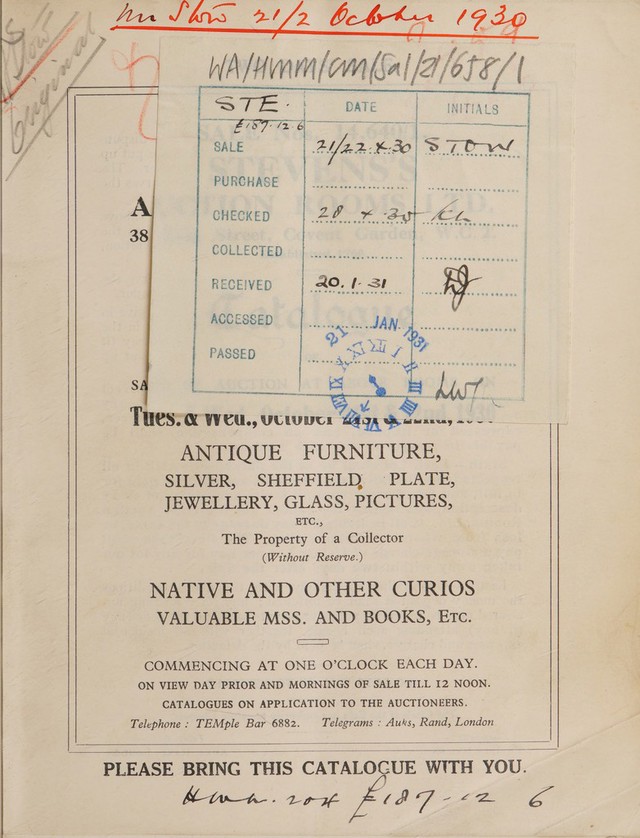 Mr Stow 21/2 October 1930
Stow
Original
WA/Hmm/cm/Sal/21/658/1
STE. DATE INITIALS
£187.12.6
SALE 21/22 x 30 STOW
PURCHASE
CHECKED 28 x 30
COLLECTED
RECEIVED 20.1.31
ACCESSED
PASSED
21 JAN. 1931
A
38
SA
Tues. & Wed., October
ANTIQUE FURNITURE,
SILVER, SHEFFIELD PLATE,
JEWELLERY, GLASS, PICTURES,
ETC.,
The Property of a Collector
(Without Reserve.)
NATIVE AND OTHER CURIOS
VALUABLE MSS. AND BOOKS, Etc.
COMMENCING AT ONE O'CLOCK EACH DAY.
ON VIEW DAY PRIOR AND MORNINGS OF SALE TILL 12 NOON.
CATALOGUES ON APPLICATION TO THE AUCTIONEERS.
Telephone : TEMple Bar 6882. Telegrams : Auks, Rand, London
PLEASE BRING THIS CATALOGUE WITH YOU.
£187-12 6